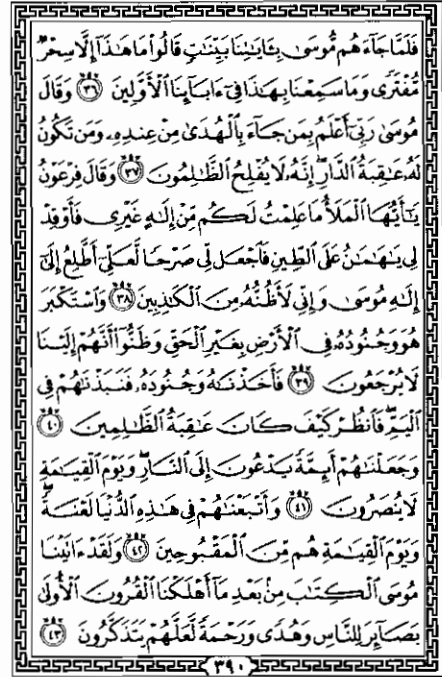 فَلَمَّا جَآءَهُم مُّوسَىٰ بِـَٔايَـٰتِنَا بَيِّنَـٰتٍ قَالُوا۟ مَا هَـٰذَآ إِلَّا سِحْرٌ
مُّفْتَرًى وَمَا سَمِعْنَا بِهَـٰذَا فِىٓ ءَابَآئِنَا ٱلْأَوَّلِينَ ٣٦ وَقَالَ
مُوسَىٰ رَبِّىٓ أَعْلَمُ بِمَن جَآءَ بِٱلْهُدَىٰ مِنْ عِندِهِۦ وَمَن تَكُونُ
لَهُۥ عَـٰقِبَةُ ٱلدَّارِ إِنَّهُۥ لَا يُفْلِحُ ٱلظَّـٰلِمُونَ ٣٧ وَقَالَ فِرْعَوْنُ
يَـٰٓأَيُّهَا ٱلْمَلَأُ مَا عَلِمْتُ لَكُم مِّنْ إِلَـٰهٍ غَيْرِى فَأَوْقِدْ
لِى يَـٰهَـٰمَـٰنُ عَلَى ٱلطِّينِ فَٱجْعَل لِّى صَرْحًا لَّعَلِّىٓ أَطَّلِعُ إِلَىٰٓ
إِلَـٰهِ مُوسَىٰ وَإِنِّى لَأَظُنُّهُۥ مِنَ ٱلْكَـٰذِبِينَ ٣٨ وَٱسْتَكْبَرَ
هُوَ وَجُنُودُهُۥ فِى ٱلْأَرْضِ بِغَيْرِ ٱلْحَقِّ وَظَنُّوٓا۟ أَنَّهُمْ إِلَيْنَا
لَا يُرْجَعُونَ ٣٩ فَأَخَذْنَـٰهُ وَجُنُودَهُۥ فَنَبَذْنَـٰهُمْ فِى
ٱلْيَمِّ فَٱنظُرْ كَيْفَ كَانَ عَـٰقِبَةُ ٱلظَّـٰلِمِينَ ٤٠
وَجَعَلْنَـٰهُمْ أَئِمَّةً يَدْعُونَ إِلَى ٱلنَّارِ وَيَوْمَ ٱلْقِيَـٰمَةِ
لَا يُنصَرُونَ ٤١ وَأَتْبَعْنَـٰهُمْ فِى هَـٰذِهِ ٱلدُّنْيَا لَعْنَةً
وَيَوْمَ ٱلْقِيَـٰمَةِ هُم مِّنَ ٱلْمَقْبُوحِينَ ٤٢ وَلَقَدْ ءَاتَيْنَا
مُوسَى ٱلْكِتَـٰبَ مِنۢ بَعْدِ مَآ أَهْلَكْنَا ٱلْقُرُونَ ٱلْأُولَىٰ
بَصَآئِرَ لِلنَّاسِ وَهُدًى وَرَحْمَةً لَّعَلَّهُمْ يَتَذَكَّرُونَ ٤٣
٣٩٠